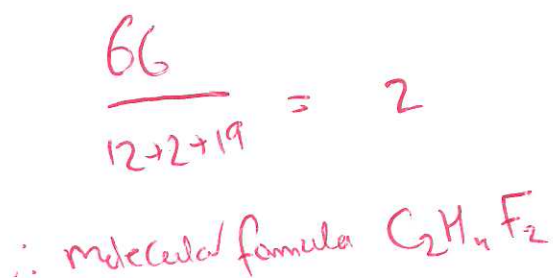 66
12+2+19 = 2
∴ molecular formula C₂H₄F₂